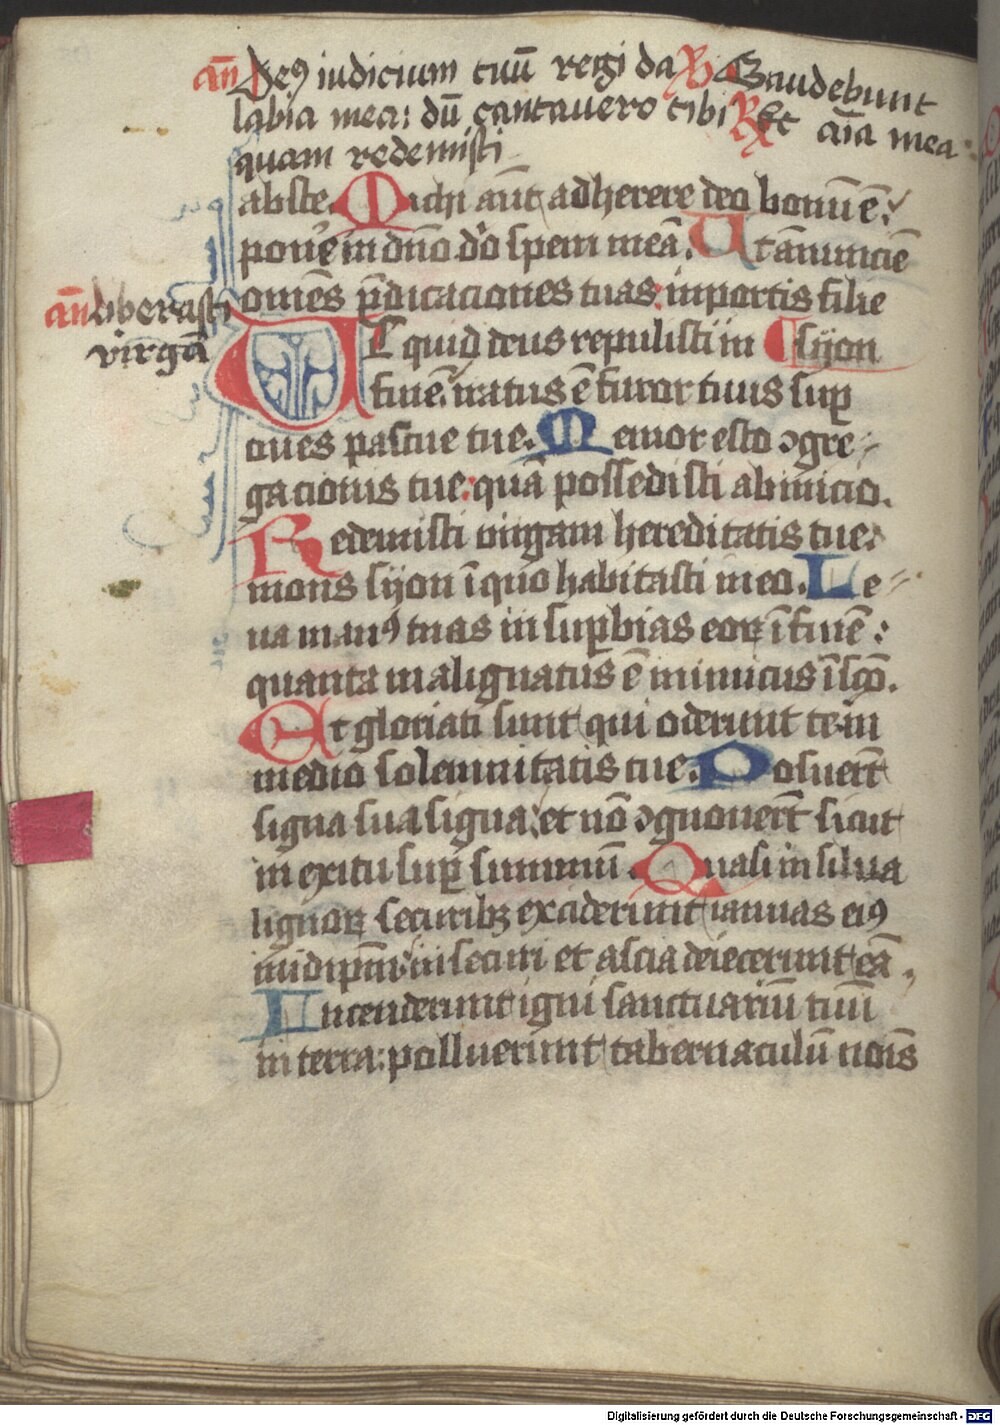 an̄ Deꝰ iudicium tuū regi da ℟ Gaudebunt
labia mea: dū cantauero tibi ℟ Et aīa mea
quam redemisti
abste. Michi aūt adherere deo bonū ē:
ponē in dn̄o dō spem meā. Ut ānunciē
om̄es p̄dicaciones tuas: in portis filie
an̄ liberasti
virgā
UT quid deus repulisti in syon
finē: iratus ē furor tuus suꝑ
oues pascue tue. Memor esto ꝯgre-
gacionis tue: quā possedisti ab inicio.
Redemisti uirgam hereditatis tue:
mons syon ī quo habitasti in eo. Le-
ua manꝰ tuas in suꝑbias eoꝝ ī finē:
quanta malignatus ē inimicus ī sc̄o.
Et gloriati sunt qui oderunt te: in
medio solemnitatis tue. Posuer̄t
signa sua signa: et nō ꝯgnouer̄t sicut
in exitu suꝑ summū. Quasi in silua
lignoꝝ securibꝫ exciderunt ianuas eiꝰ
in securi et ascia deiecerunt eā.
Incenderunt igni sanctuariū tuū
in terra: polluerunt tabernaculū nōis
Digitalisierung gefördert durch die Deutsche Forschungsgemeinschaft - DFG